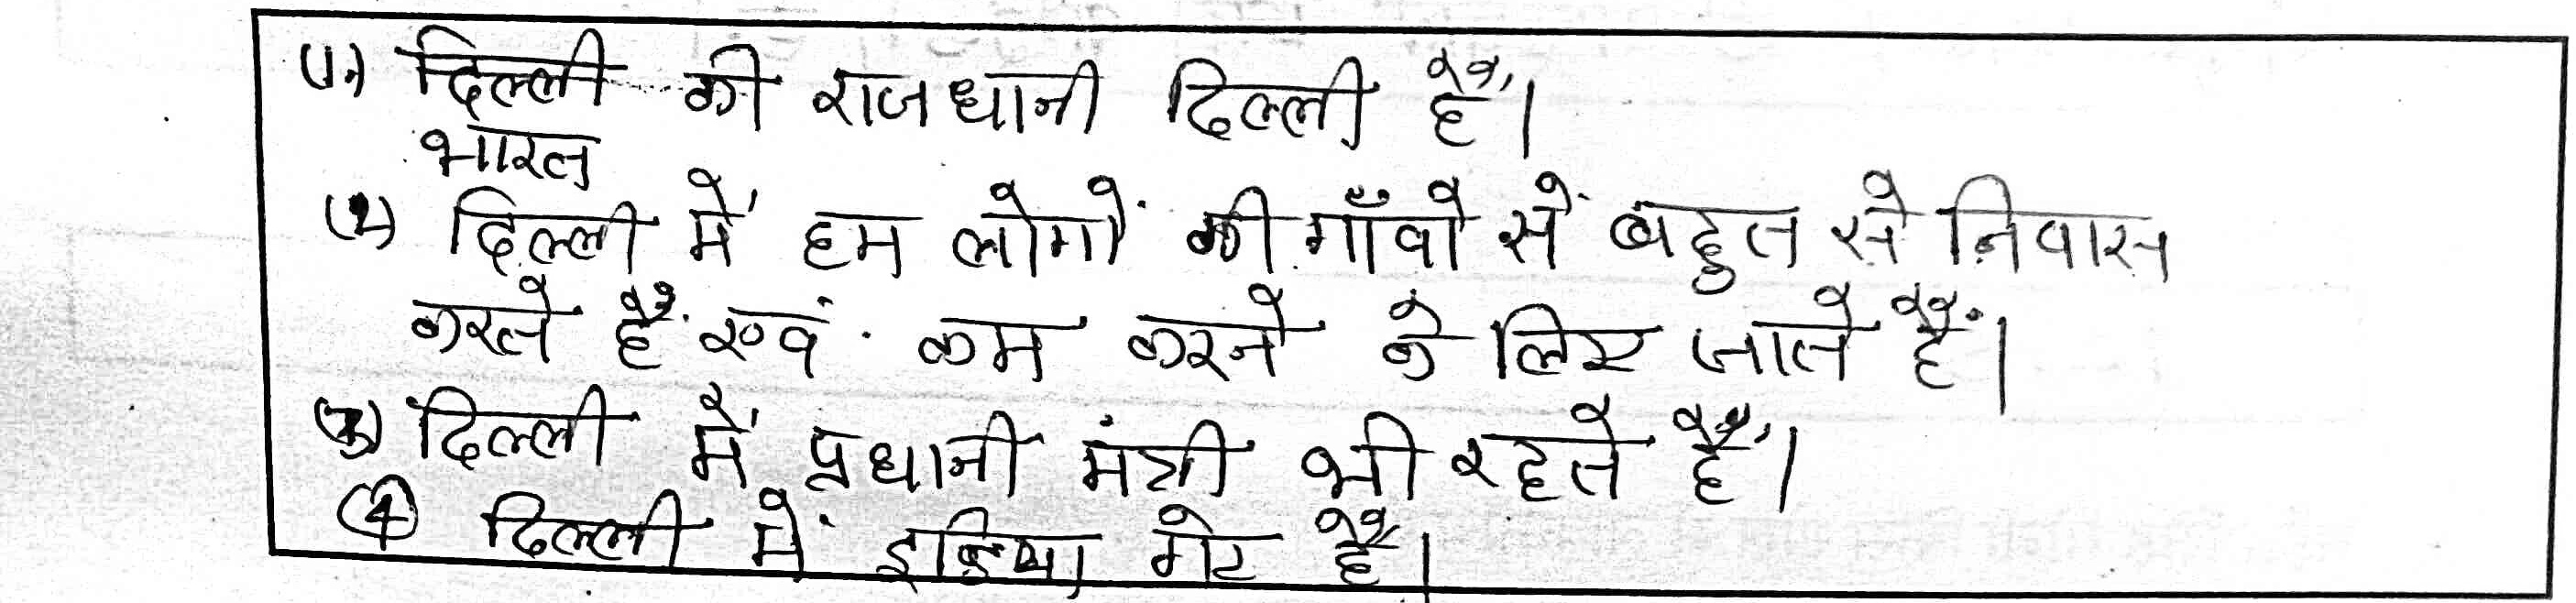 (1) दिल्ली की राजधानी दिल्ली हैं।
भारत
(2) दिल्ली में हम लोगों की गाँवो से बहुत से निवास
करते हैं एवं कम करने के लिए जाते हैं।
(3) दिल्ली में प्रधानी मंत्री भी रहते हैं।
(4) दिल्ली में इंडिया गेट हैं।